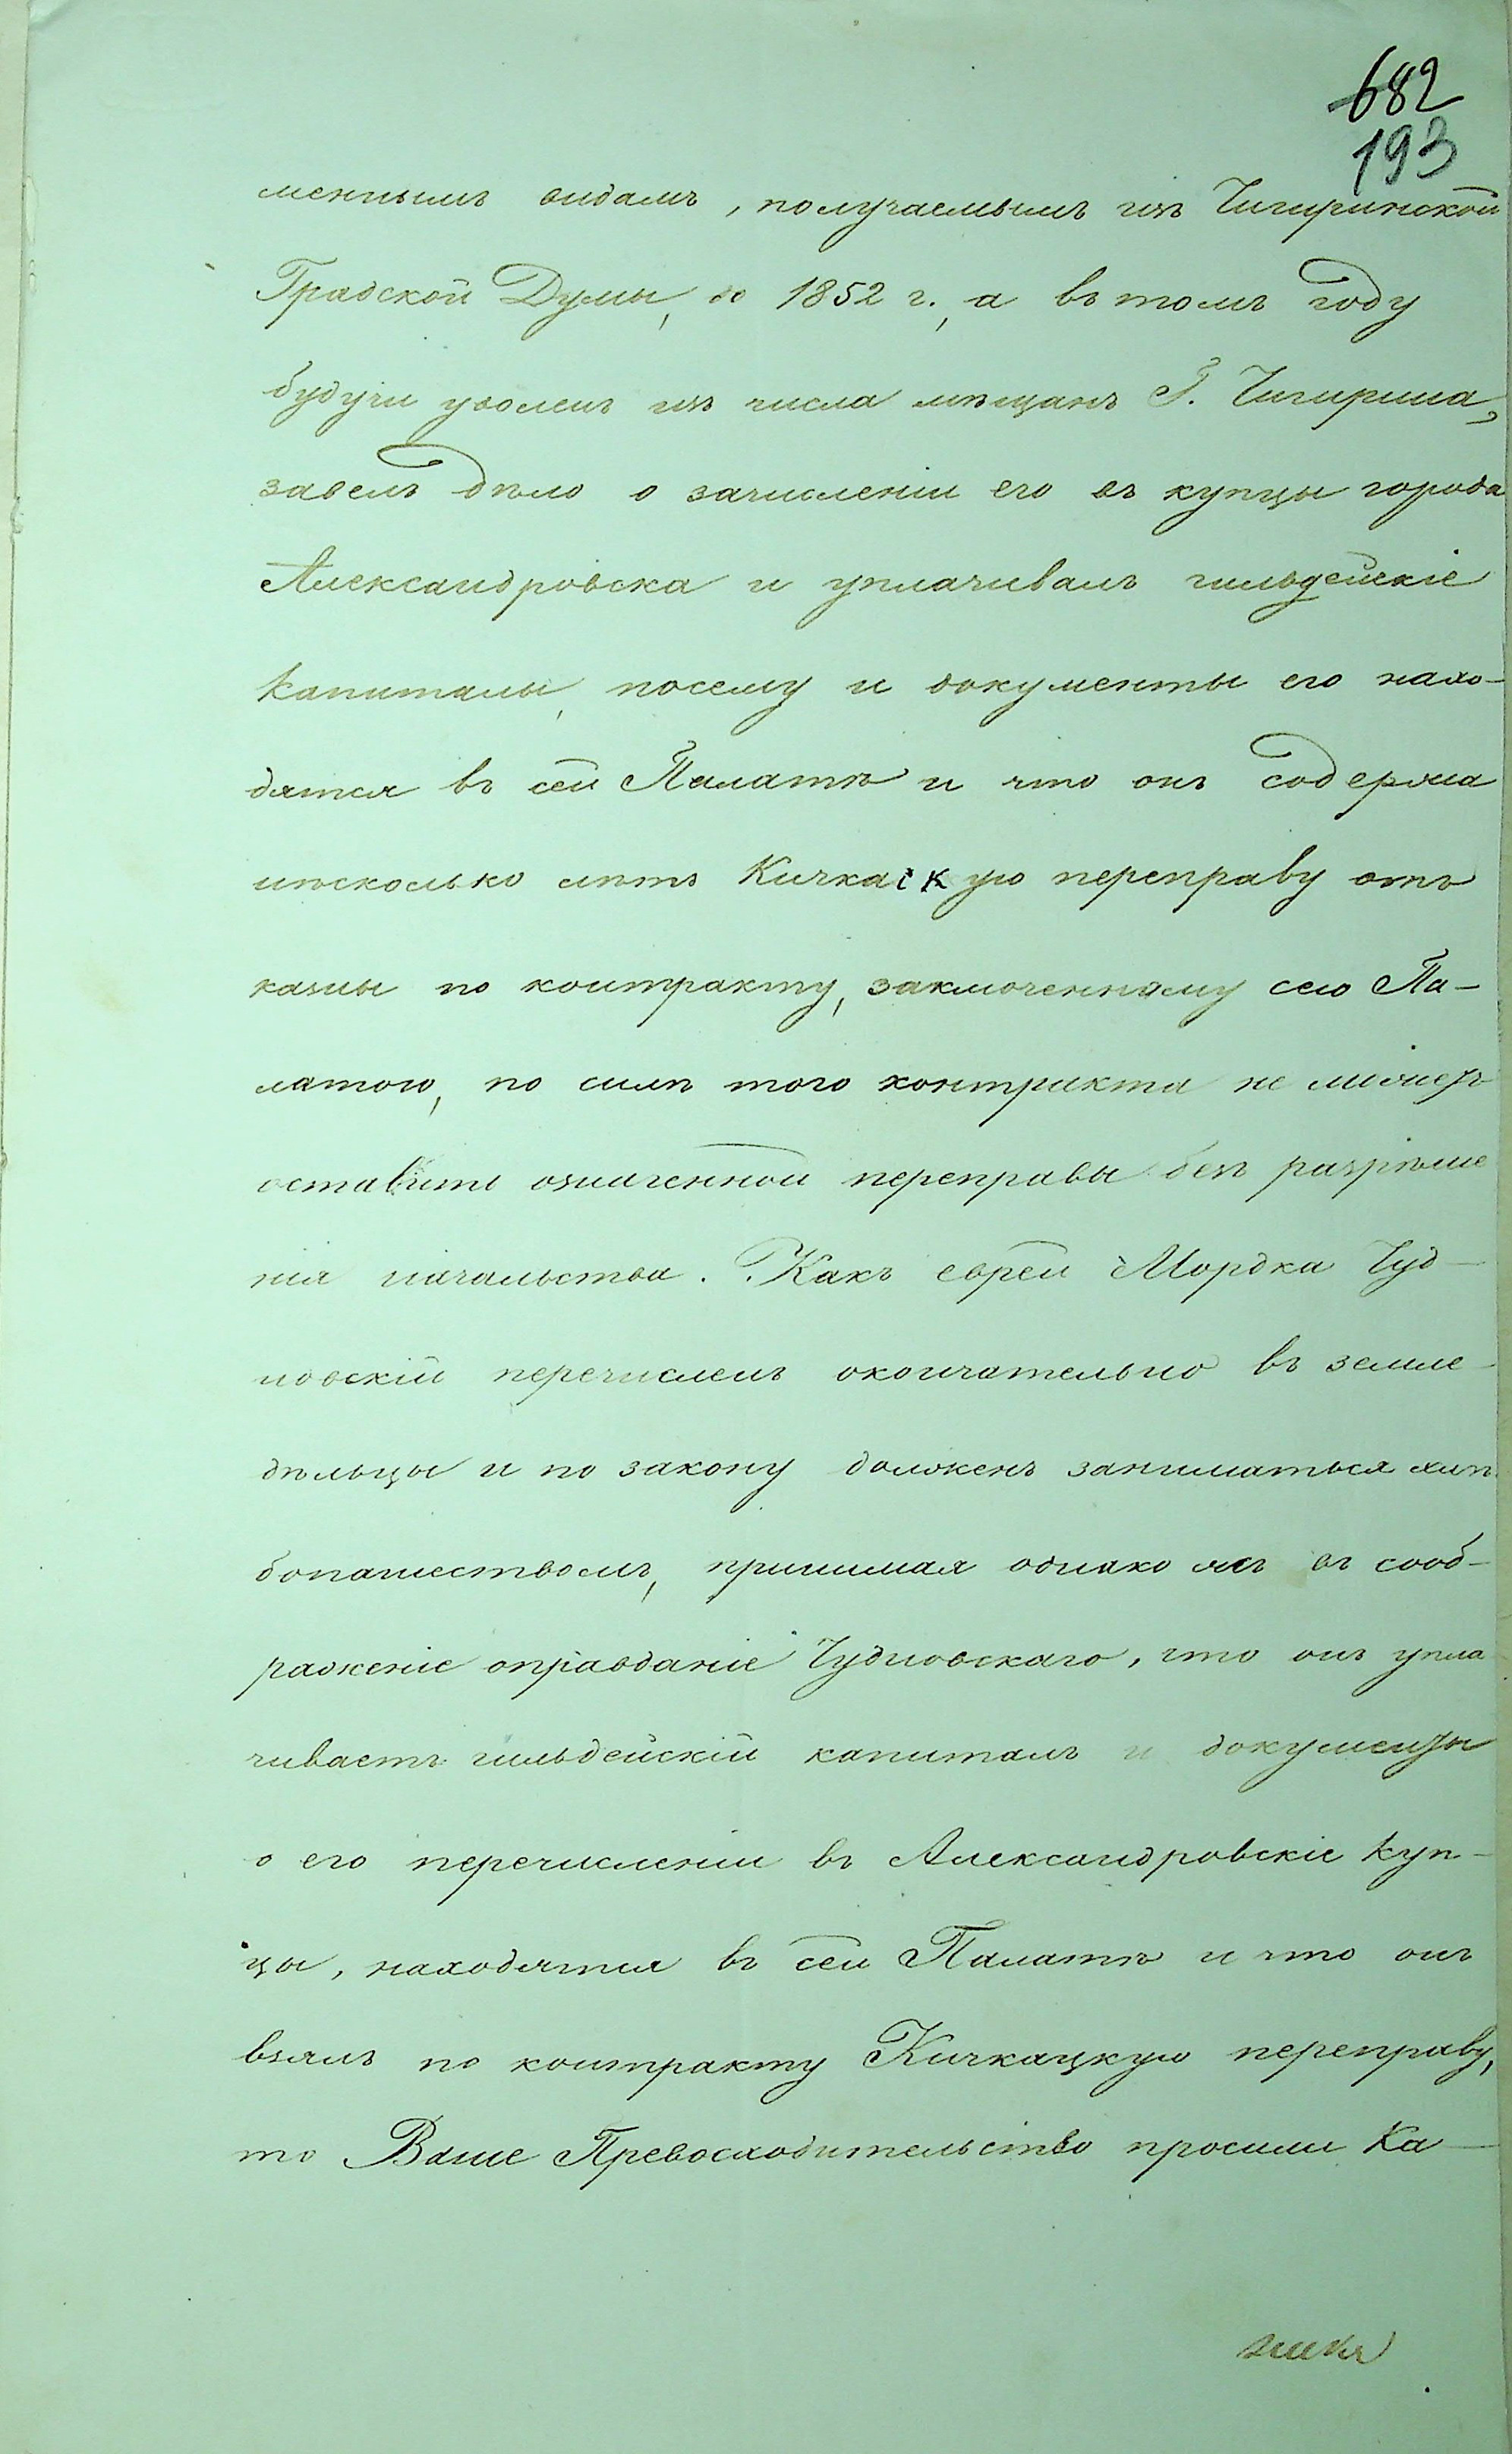 682
193
меннымъ видамъ, получаемымъ изъ Чигиринской
Градской Думы, до 1852 г., а въ томъ году
будучи уволенъ изъ числа мѣщанъ Г. Чигирина,
завелъ дѣло о зачисленіи его въ купцы города
Александровска и уплачивалъ гильдейскіе
капиталы, посему и документы его нахо-
дятся въ сей Палатѣ и что онъ содержа
нѣсколько лѣтъ Кичкаскую переправу отъ
казны по контракту, заключенному сею Па-
латою, по силѣ того контракта не можетъ
оставить означенной переправы безъ разрѣше
нія начальства. Какъ еврей Мордка Чуд-
новскій перечисленъ окончательно въ земле-
дѣльцы и по закону долженъ заниматься хлѣ-
бопашествомъ, принимая однако жъ въ сооб-
раженіе оправданіе Чудновскаго, что онъ упла
чиваетъ гильдейскій капиталъ и документы
о его перечисленіи въ Александровскіе куп-
цы, находятся въ сей Палатѣ и что онъ
взялъ по контракту Кичкацкую переправу,
то Ваше Превосходительство просили Ка-